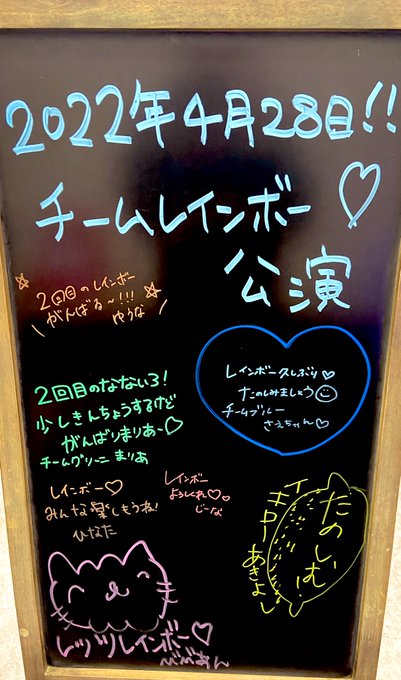 2022年4月28日!!
チームレインボー♡
公演
☆2回目のレインボー
がんばる〜!!!☆
ゆうな
レインボー久しぶり♡
たのしみましょう☺
チームブルー
さえちゃん♡
2回目のなないろ!
少しきんちょうするけど
がんばりまりあ〜♡
チームグリーン まりあ
レインボー♡
みんな愛しもうね!
ひなた
レインボー
よろしくね♡
じーな
たのしむ
イエロー あきよし
レッツレインボー♡